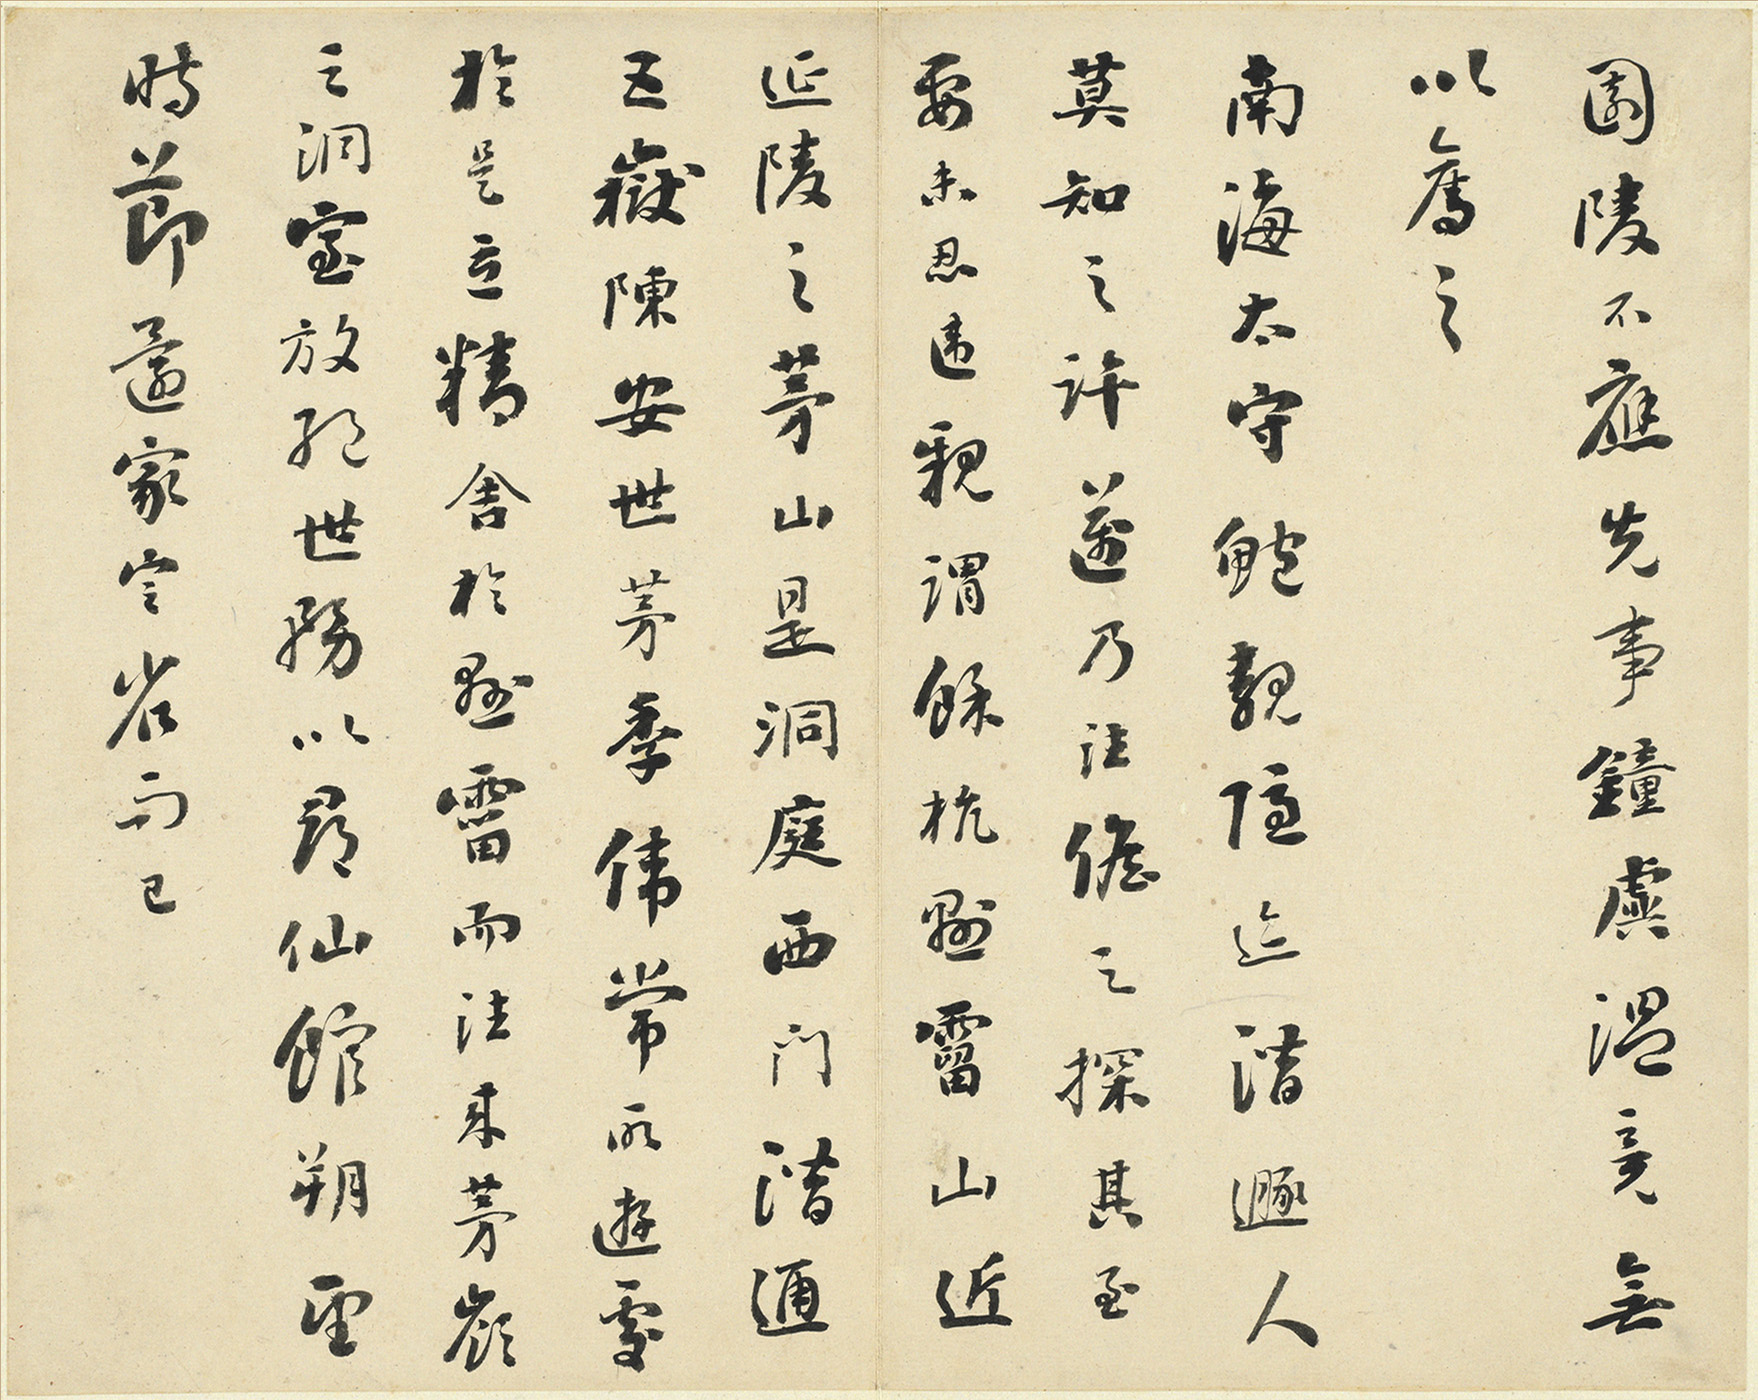 園陵不應先事鐘虡溫亮無
以奪之
南海太守鮑靚隱迹潛遯人
莫知之許邁乃往候之探其至
要未忍違親謂餘杭懸霤山近
延陵之茅山是洞庭西門潛通
五嶽陳安世茅季偉常所遊處
於是立精舍於懸霤而往來茅嶺
之洞室放絕世務以尋仙館朔望
時節還家定省而已